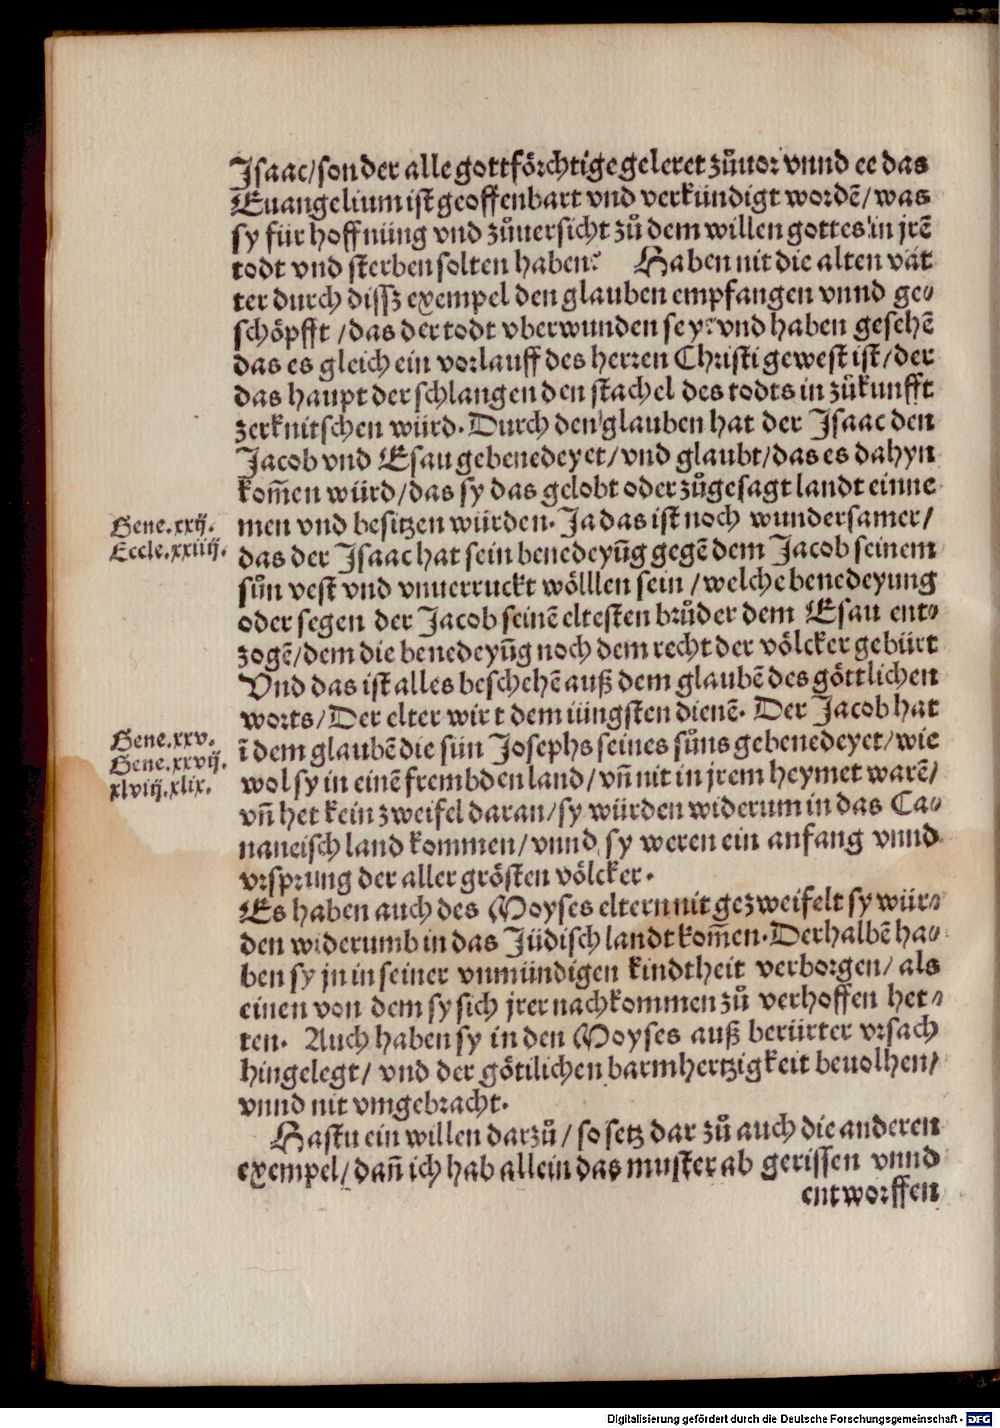 Isaac/sonder alle gottförchtige geleret zůuor vnnd ee das
Euangelium ist geoffenbart vnd verkündigt wordē/was
sy für hoffnüng vnd zůuersicht zů dem willen gottes in jrē
todt vnd sterben solten haben? Haben nit die alten vät
ter durch dissz exempel den glauben empfangen vnnd ge⸗
schöpfft /das der todt vberwunden sey? vnd haben gesehē
das es gleich ein vorlauff des herren Christi gewest ist/der
das haupt der schlangen den stachel des todts in zůkunfft
zerknitschen würd. Durch den glauben hat der Isaac den
Jacob vnd Esau gebenedeyet/vnd glaubt/das es dahyn
kom̄en würd/das sy das gelobt oder zůgesagt landt einne
Gene.xxij.
Eccle.xxiiij.
men vnd besitzen würden. Ja das ist noch wundersamer/
das der Isaac hat sein benedeyūg gegē dem Jacob seinem
sůn vest vnd vnuerruckt wölllen sein /welche benedeyung
oder segen der Jacob seinē eltesten brůder dem Esau ent⸗
zogē/dem die benedeyūg noch dem recht der völcker gebürt
Vnd das ist alles beschehē auß dem glaubē des göttlichen
worts/Der elter wirt dem iüngsten dienē. Der Jacob hat
Gene.xxv.
Gene.xxvij.
xlviij.xlix.
ī dem glaubē die sün Josephs seines sůns gebenedeyet/wie
wol sy in einē frembden land/vn̄ nit in jrem heymet warē/
vn̄ het kein zweifel daran/sy würden widerum in das Ca⸗
naneisch land kommen/vnnd sy weren ein anfang vnnd
vrsprung der aller grösten völcker.
Es haben auch des Moyses eltern nit gezweifelt sy wür⸗
den widerumb in das Jüdisch landt kom̄en. Derhalbē ha⸗
ben sy jn in seiner vnmündigen kindtheit verborgen/ als
einen von dem sy sich jrer nachkommen zů verhoffen het⸗
ten. Auch haben sy in den Moyses auß berürter vrsach
hingelegt/ vnd der götilichen barmhertzigkeit beuolhen/
vnnd nit vmgebracht.
Hastu ein willen darzů/ so setz dar zů auch die anderen
exempel/dan̄ ich hab allein das muster ab gerissen vnnd
entworffen
Digitalisierung gefördert durch die Deutsche Forschungsgemeinschaft - DFG